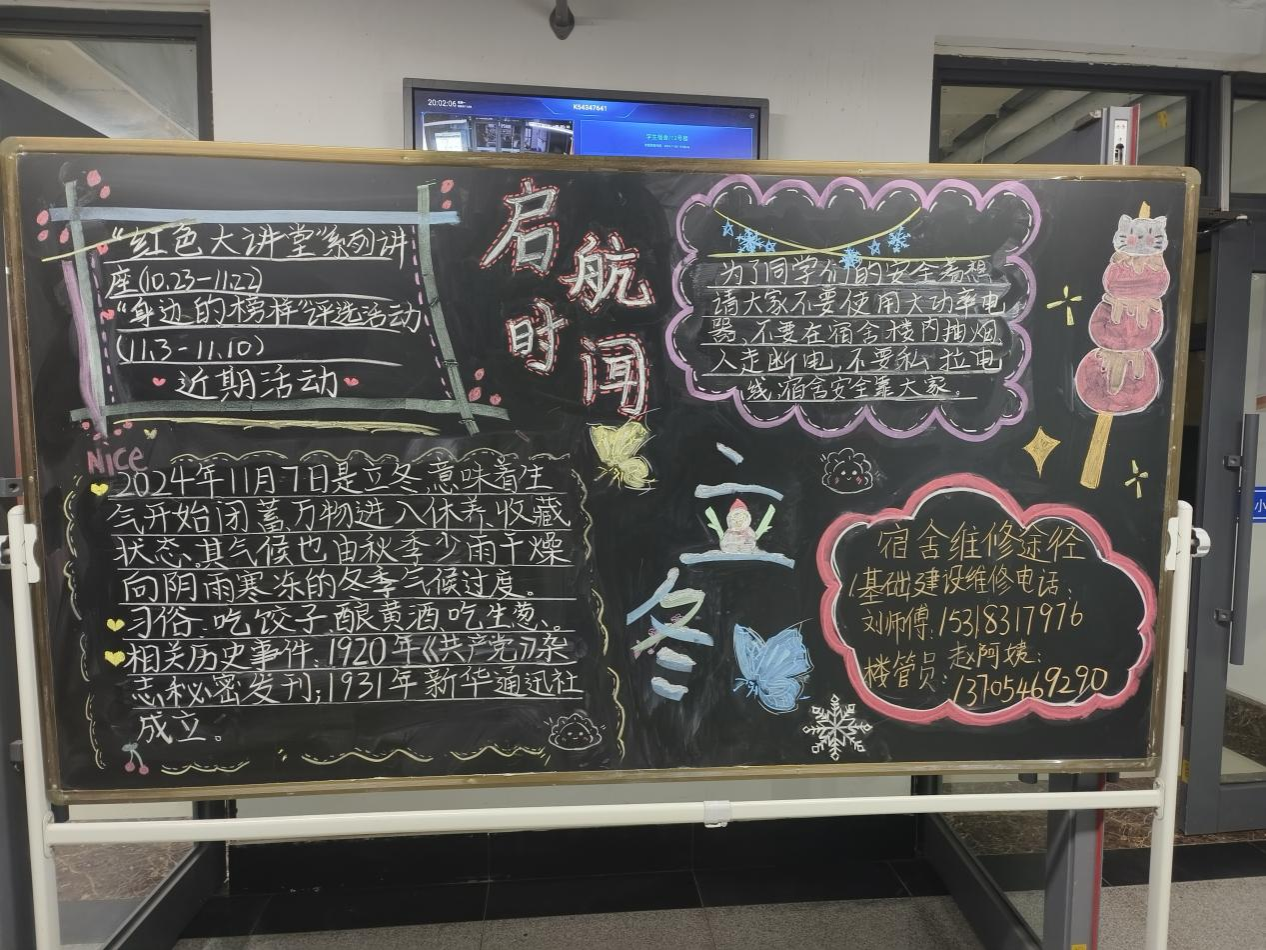 20:02:06
K54347641
"红色大讲堂"系列讲
座(10.23-11.22)
"身边的榜样"评选活动
(11.3-11.10)
近期活动
启航
时闻
为了同学们的安全着想
请大家不要使用大功率电
器、不要在宿舍楼内抽烟
人走断电,不要私拉电
线,宿舍安全靠大家。
NICE
2024年11月7日是立冬,意味着生
气开始闭蓄,万物进入休养、收藏
状态、其气候也由秋季少雨干燥
向阴雨寒冻的冬季气候过度。
习俗:吃饺子、酿黄酒、吃生葱、。
相关历史事件:1920年《共产党》杂
志秘密发刊;1931年新华通讯社
成立。
立
冬
宿舍维修途径
基础建设维修电话:
刘师傅:15318317976
楼管员:赵阿姨:
13705469290
小